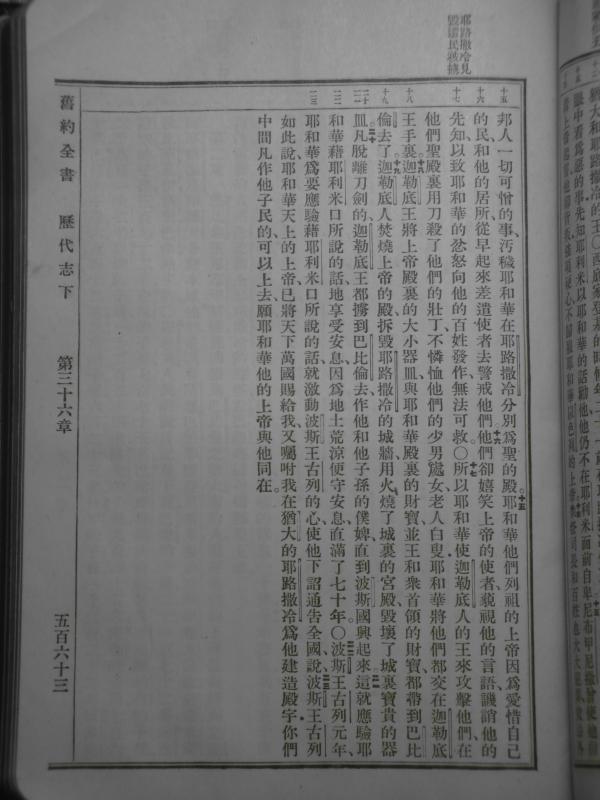 耶路撒冷見
毀國民被擄
舊約全書 歷代志下 第三十六章 五百六十三
十五
十六
十七
十八
十九
二十
二一
二二
二三
邦人一切可憎的事、汚穢耶和華在耶路撒冷分別爲聖的殿、十五耶和華他們列祖的上帝因爲愛惜自己
的民和他的居所、從早起來差遣使者去警戒他們、十六他們卻嬉笑上帝的使者、藐視他的言語、譏誚他的
先知、以致耶和華的忿怒向他的百姓發作、無法可救。〇十七所以耶和華使迦勒底人的王來攻擊他們、在
他們聖殿裏用刀殺了他們的壯丁、不憐恤他們的少男處女、老人白叟、耶和華將他們都交在迦勒底
王手裏、十八迦勒底王將上帝殿裏的大小器皿與耶和華殿裏的財寶、並王和衆首領的財寶、都帶到巴比
倫去了、十九迦勒底人焚燒上帝的殿、拆毀耶路撒冷的城牆、用火燒了城裏的宮殿、毀壞了城裏寶貴的器
皿、二十凡脫離刀劍的、迦勒底王都擄到巴比倫去、作他和他子孫的僕婢、直到波斯國興起來、二一這就應驗耶
和華藉耶利米口所說的話、地享受安息、因爲地土荒涼便守安息、直滿了七十年。〇二二波斯王古列元年、
耶和華爲要應驗藉耶利米口所說的話、就激動波斯王古列的心、使他下詔通告全國說、二三波斯王古列
如此說、耶和華天上的上帝、已將天下萬國賜給我、又囑咐我在猶大的耶路撒冷爲他建造殿宇、你們
中間凡作他子民的、可以上去、願耶和華他的上帝與他同在。